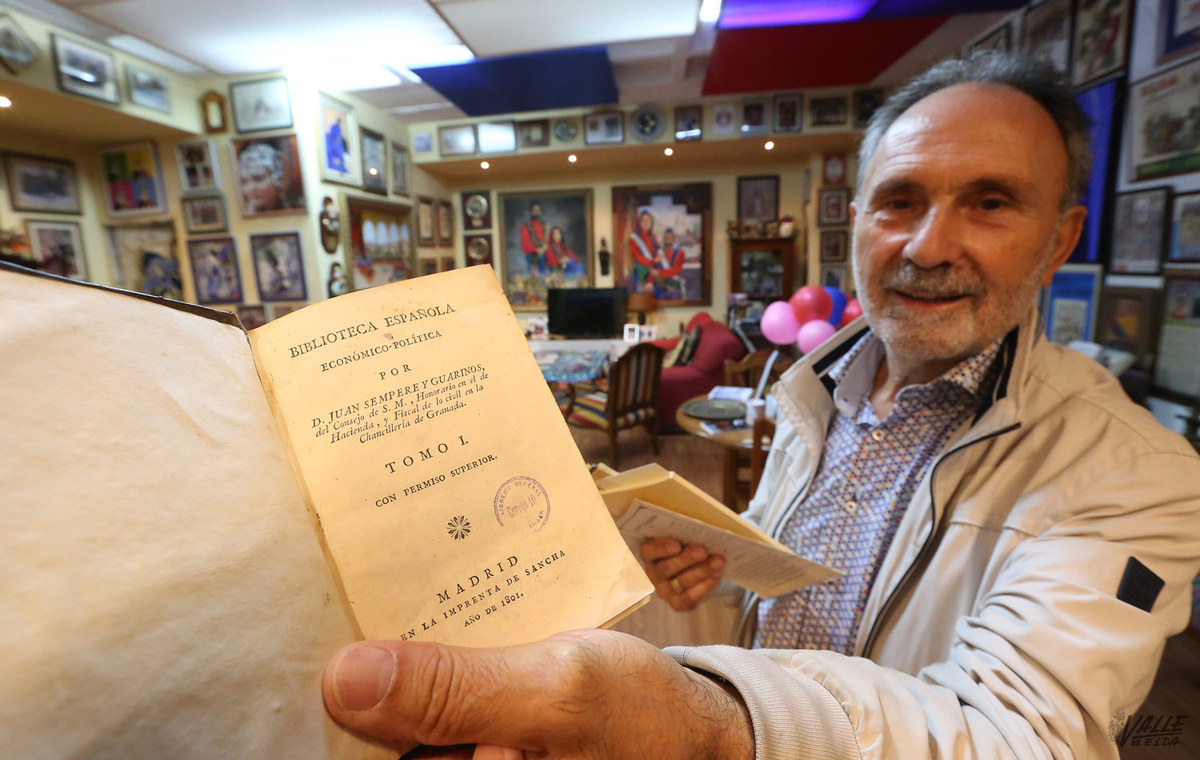 BIBLIOTECA ESPAÑOLA
ECONÓMICO-POLÍTICA
POR
D. JUAN SEMPERE Y GUARINOS,
del Consejo de S. M., Honorario en el de
Hacienda, y Fiscal de lo civil en la
Chancillería de Granada.
TOMO I.
CON PERMISO SUPERIOR.
MADRID
EN LA IMPRENTA DE SANCHA
AÑO DE 1801.
VALLE
DE ELDA